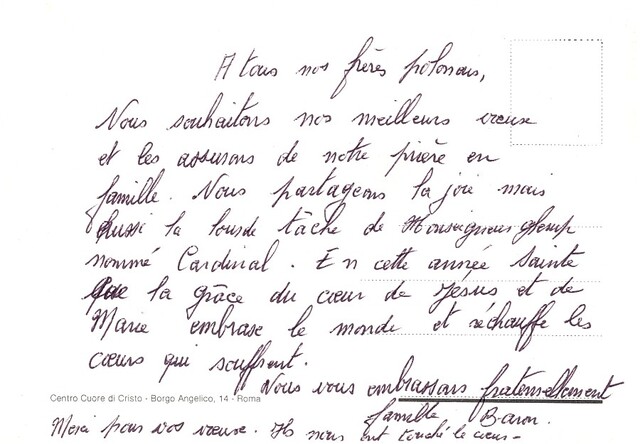 A tous nos frères polonais,
Nous souhaitons nos meilleurs vœux
et les assurons de notre prière en
famille. Nous partageons la joie mais
aussi la lourde tâche de Monseigneur Glemp
nommé Cardinal. En cette année Sainte
que la grâce du cœur de Jésus et de
Marie embrase le monde et réchauffe les
cœurs qui souffrent.
Nous vous embrassons fraternellement
Centro Cuore di Cristo - Borgo Angelico, 14 - Roma
famille Baron.
Merci pour vos vœux. Ils nous ont touché le cœur -